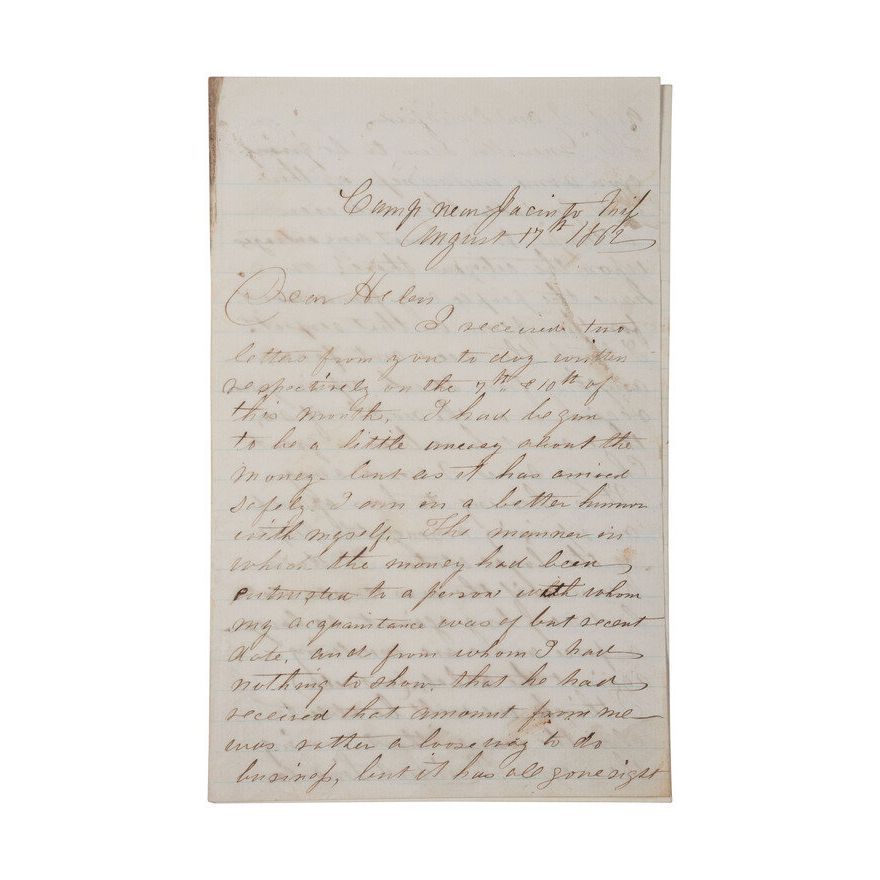 Camp near Jacinto Miss
August 17th 1862
Dear Helen
I received two
letters from you to day written
respectively on the 7th & 10th of
this month. I had begun
to be a little uneasy about the
money- but as it has arrived
safely I am in a better humor
with myself. The manner in
which the money had been
entrusted to a person with whom
my acquaintance was of but recent
date, and from whom I had
nothing to show, that he had
received that amount from me
was rather a loose way to do
business, but it has all gone right